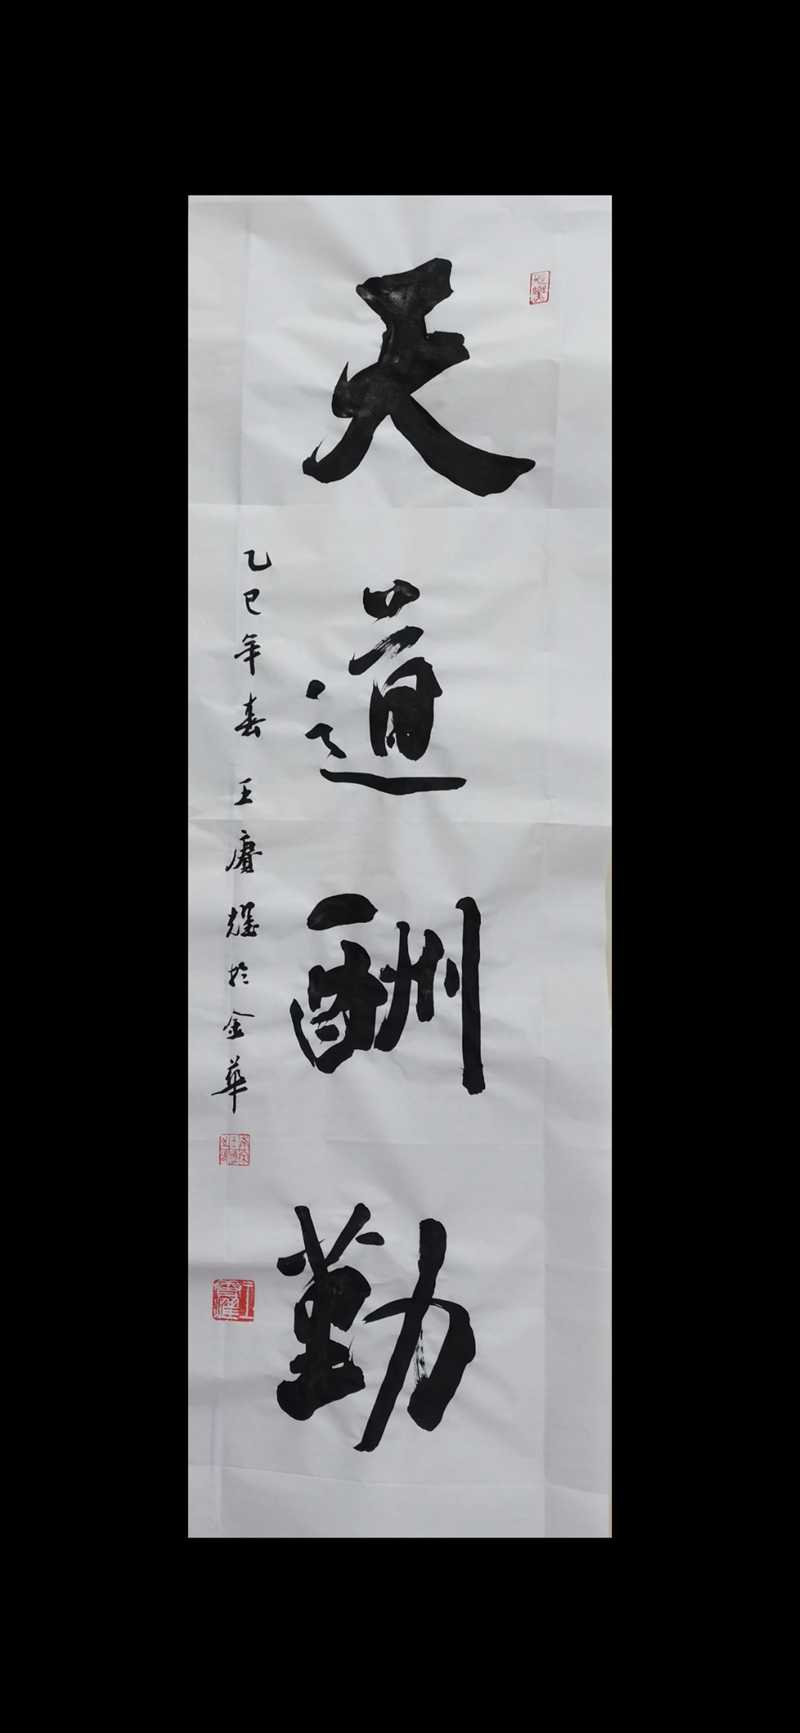 天道酬勤
乙巳年春王賡耀於金華